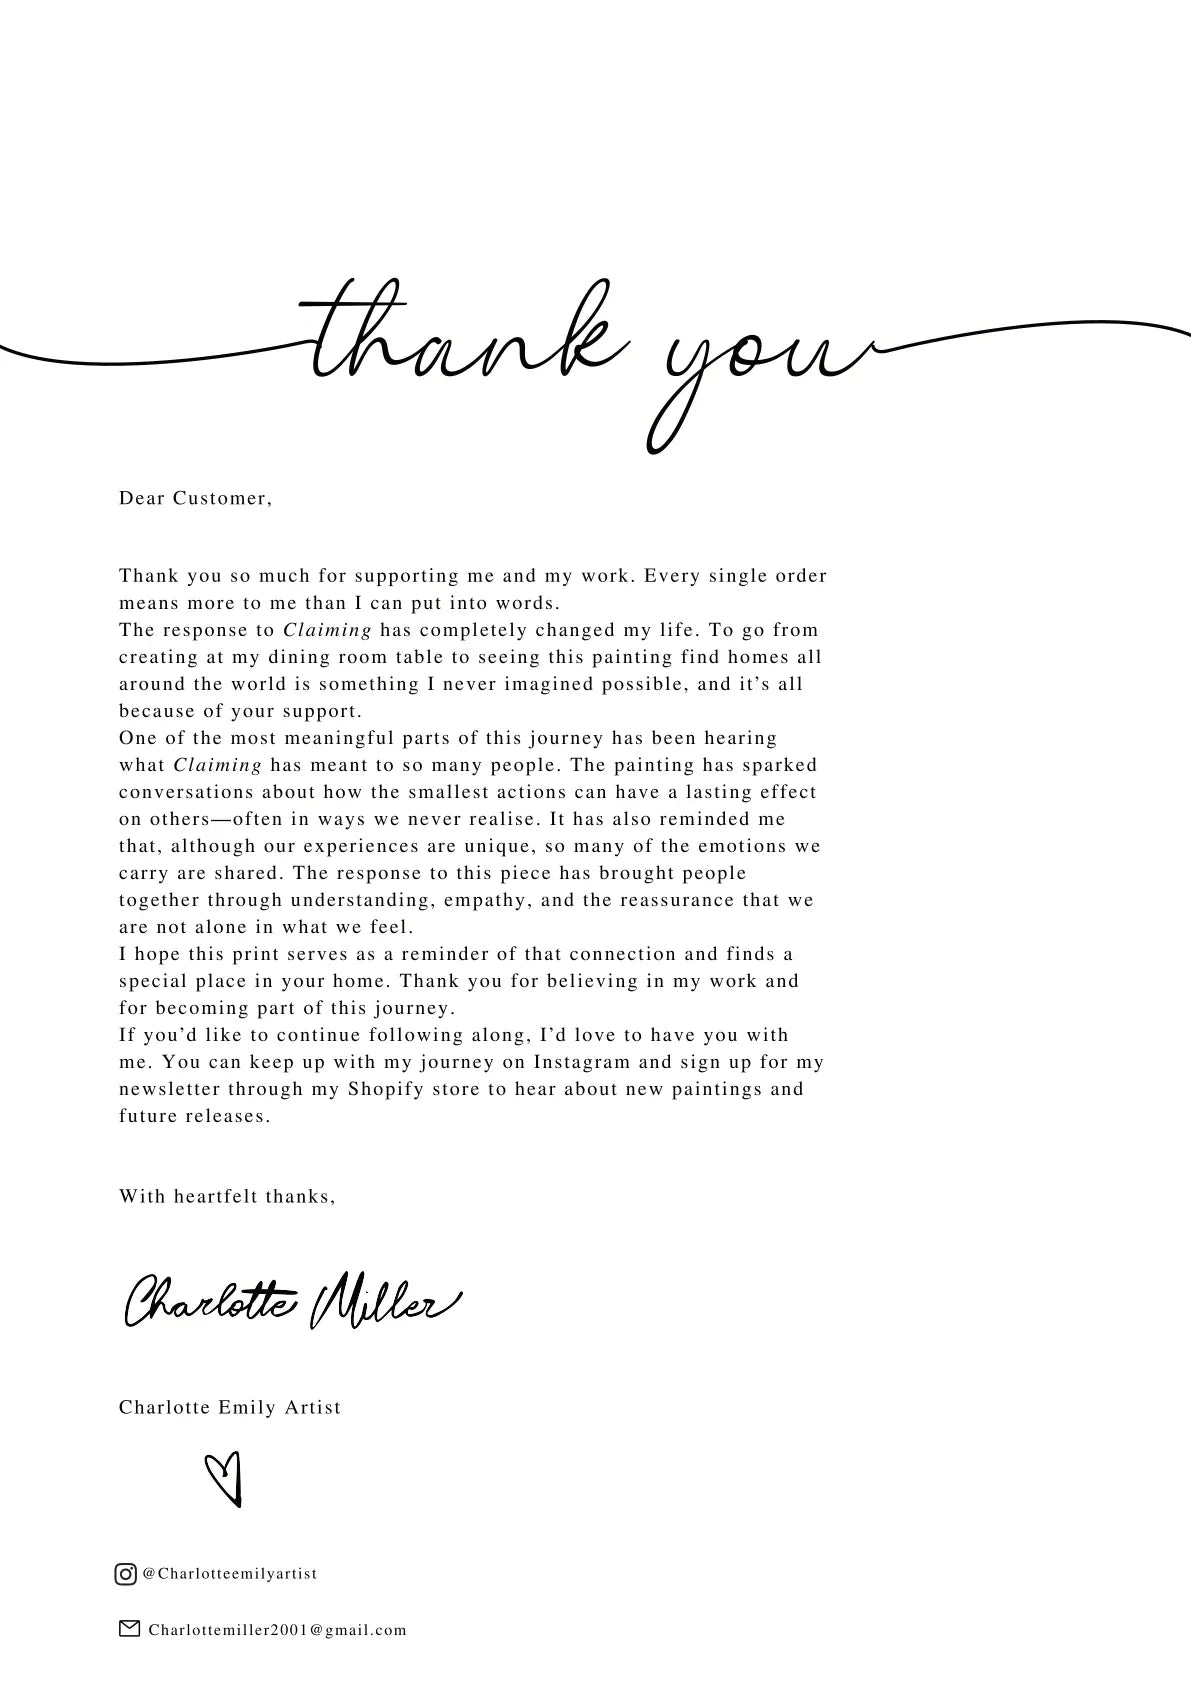 thank you
Dear Customer,
Thank you so much for supporting me and my work. Every single order
means more to me than I can put into words.
The response to Claiming has completely changed my life. To go from
creating at my dining room table to seeing this painting find homes all
around the world is something I never imagined possible, and it’s all
because of your support.
One of the most meaningful parts of this journey has been hearing
what Claiming has meant to so many people. The painting has sparked
conversations about how the smallest actions can have a lasting effect
on others—often in ways we never realise. It has also reminded me
that, although our experiences are unique, so many of the emotions we
carry are shared. The response to this piece has brought people
together through understanding, empathy, and the reassurance that we
are not alone in what we feel.
I hope this print serves as a reminder of that connection and finds a
special place in your home. Thank you for believing in my work and
for becoming part of this journey.
If you’d like to continue following along, I’d love to have you with
me. You can keep up with my journey on Instagram and sign up for my
newsletter through my Shopify store to hear about new paintings and
future releases.
With heartfelt thanks,
Charlotte Miller
Charlotte Emily Artist
@Charlotteemilyartist
Charlottemiller2001@gmail.com